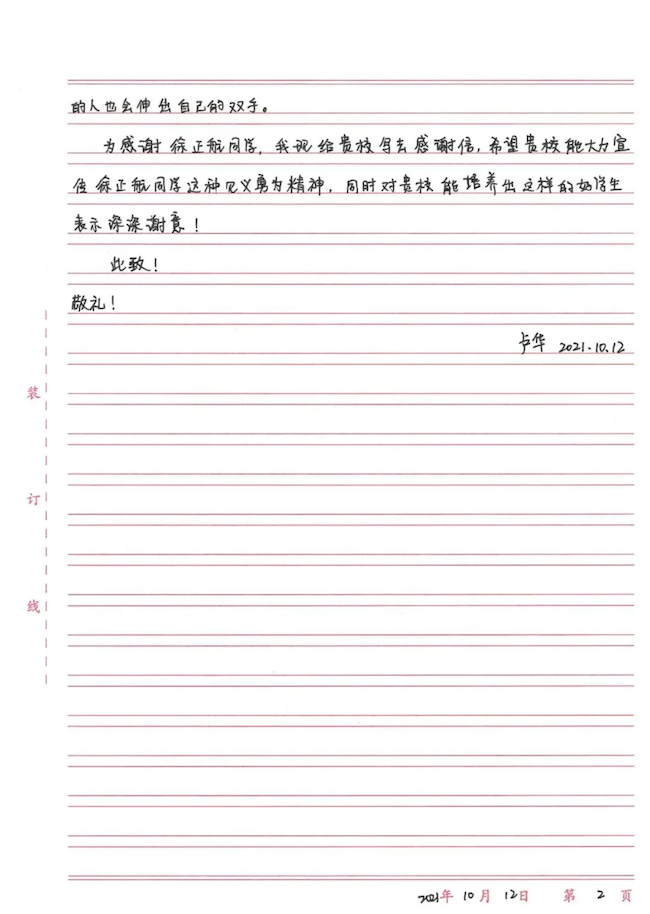 的人也会伸出自己的双手。
为感谢徐正航同学，我现给贵校写去感谢信，希望贵校能大力宣
传徐正航同学这种见义勇为精神，同时对贵校能培养出这样的好学生
表示深深谢意！
此致！
敬礼！
卢华 2021.10.12
装
订
线
2021年 10月 12日 第 2 页